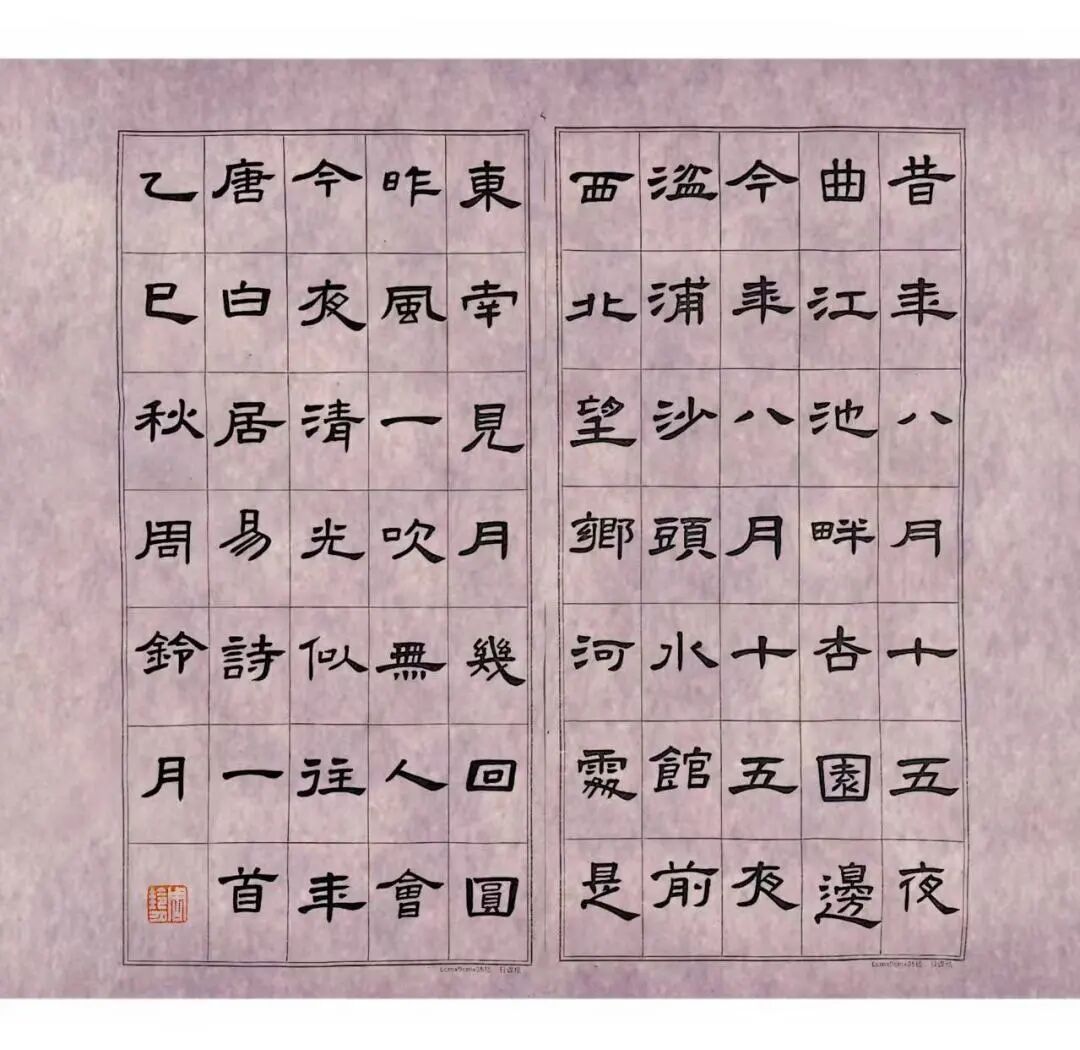 昔年八月十五夜
曲江池畔杏園邊
今年八月十五夜
湓浦沙頭水館前
西北望鄉河處是
東南見月幾回圓
昨風一吹無人會
今夜清光似往年
唐白居易詩一首
乙巳秋周鈴月